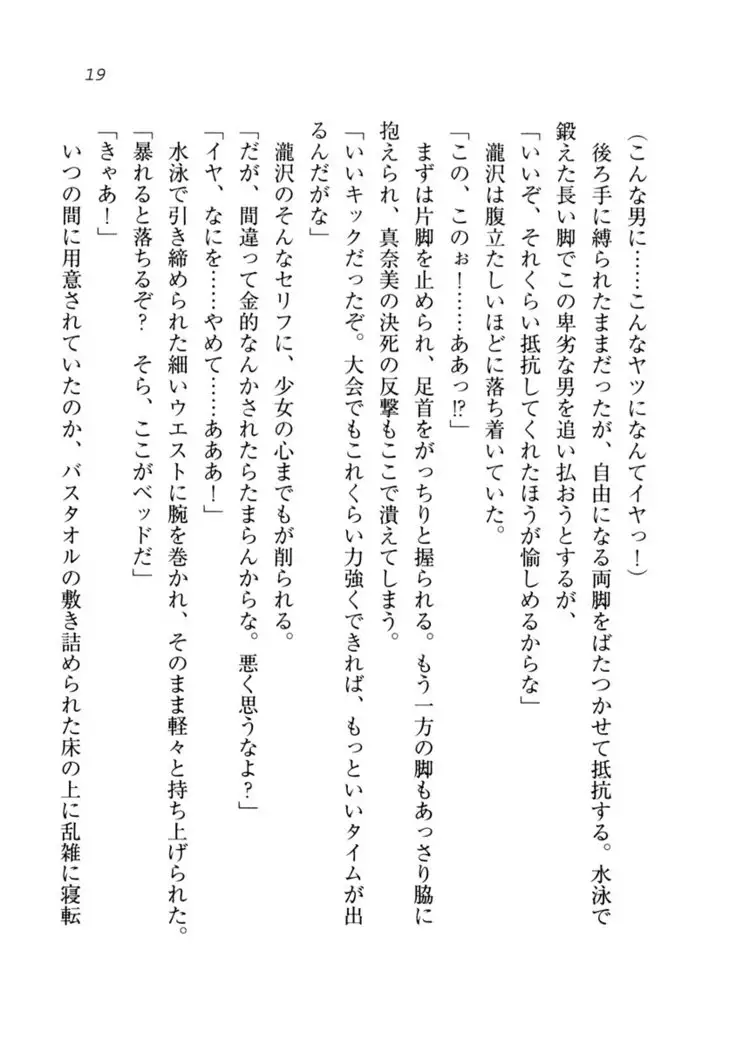 19
(こんな男に……こんなヤツになんてイヤっ！)
後ろ手に縛られたままだったが、自由になる両脚をばたつかせて抵抗する。水泳で
鍛えた長い脚でこの卑劣な男を追い払おうとするが、
「いいぞ、それくらい抵抗してくれたほうが愉しめるからな」
瀧沢は腹立たしいほどに落ち着いていた。
「この、このぉ！……ああっ⁉」
まずは片脚を止められ、足首をがっちりと握られる。もう一方の脚もあっさり脇に
抱えられ、真奈美の決死の反撃もここで潰えてしまう。
「いいキックだったぞ。大会でもこれくらい力強くできれば、もっといいタイムが出
るんだがな」
瀧沢のそんなセリフに、少女の心までもが削られる。
「だが、間違って金的なんかされたらたまらんからな。悪く思うなよ？」
「イヤ、なにを……やめて……あああ！」
水泳で引き締められた細いウエストに腕を巻かれ、そのまま軽々と持ち上げられた。
「暴れると落ちるぞ？　そら、ここがベッドだ」
「きゃあ！」
いつの間に用意されていたのか、バスタオルの敷き詰められた床の上に乱雑に寝転